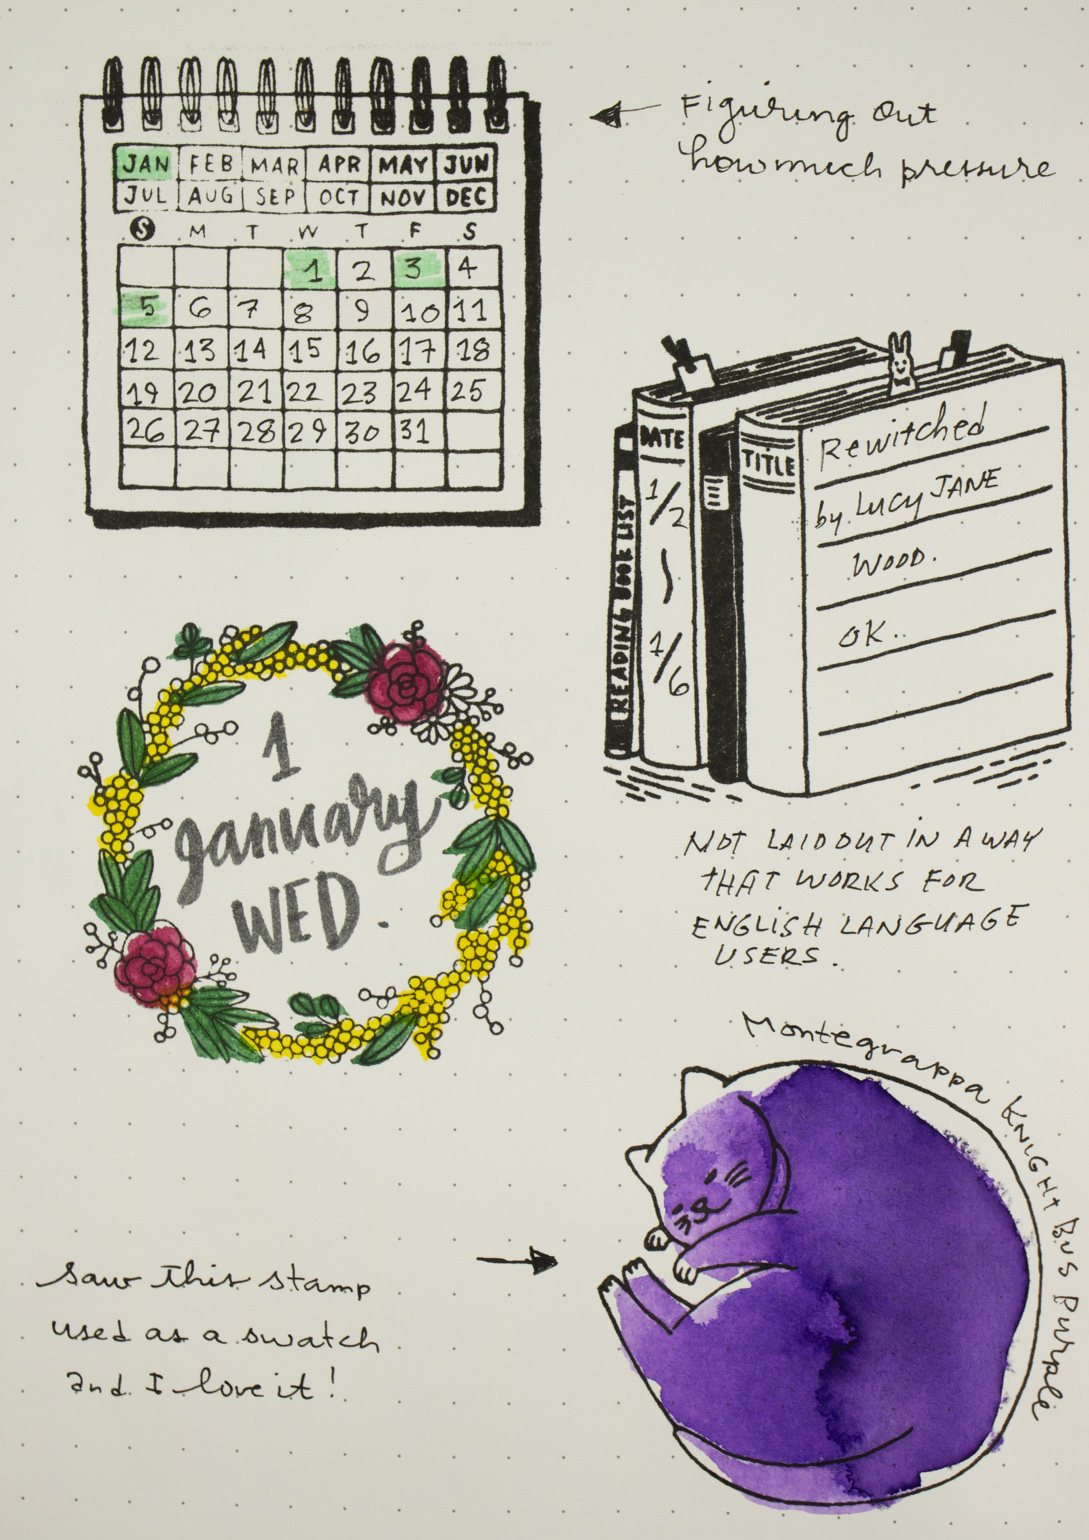 Figuring out
how much pressure
JAN FEB MAR APR MAY JUN
JUL AUG SEP OCT NOV DEC
S M T W T F S
1 2 3 4
5 6 7 8 9 10 11
12 13 14 15 16 17 18
19 20 21 22 23 24 25
26 27 28 29 30 31
READING BOOK LIST
DATE
1/2
1/6
TITLE
Rewitched
by Lucy JANE
WOOD.
OK.
NOT LAID OUT IN A WAY
THAT WORKS FOR
ENGLISH LANGUAGE
USERS.
1
January
WED.
Montegrappa KNIGHT BUS PURPLE
saw this stamp
used as a swatch
and I love it!